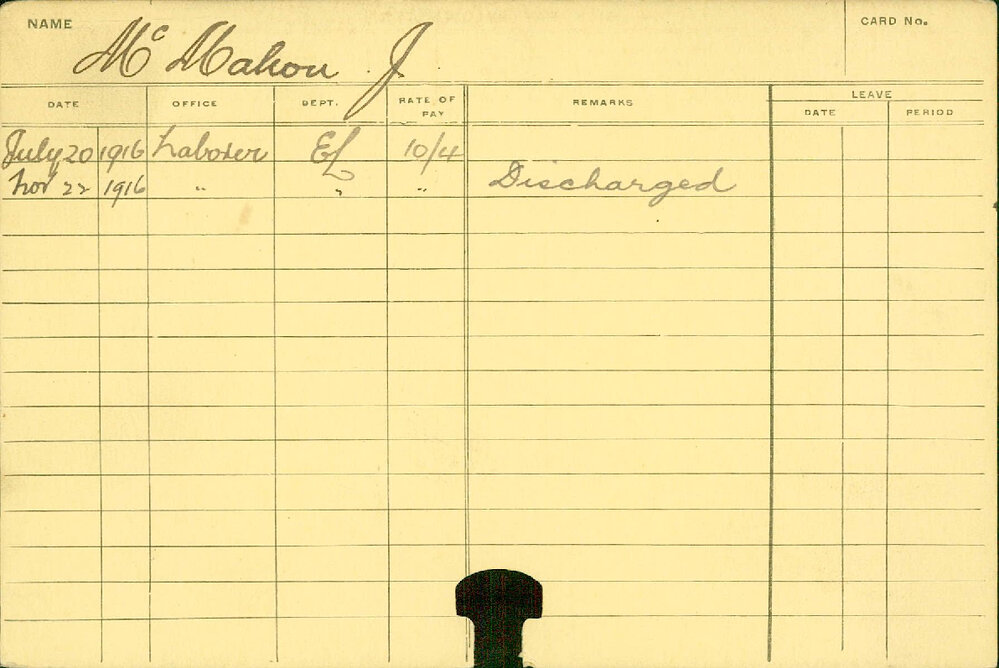 NAME Mc Mahon J. CARD No.
DATE OFFICE DEPT. RATE OF PAY REMARKS LEAVE
DATE PERIOD
July 20 1916 Laborer EL 10/4
Nov 22 1916 " " " Discharged